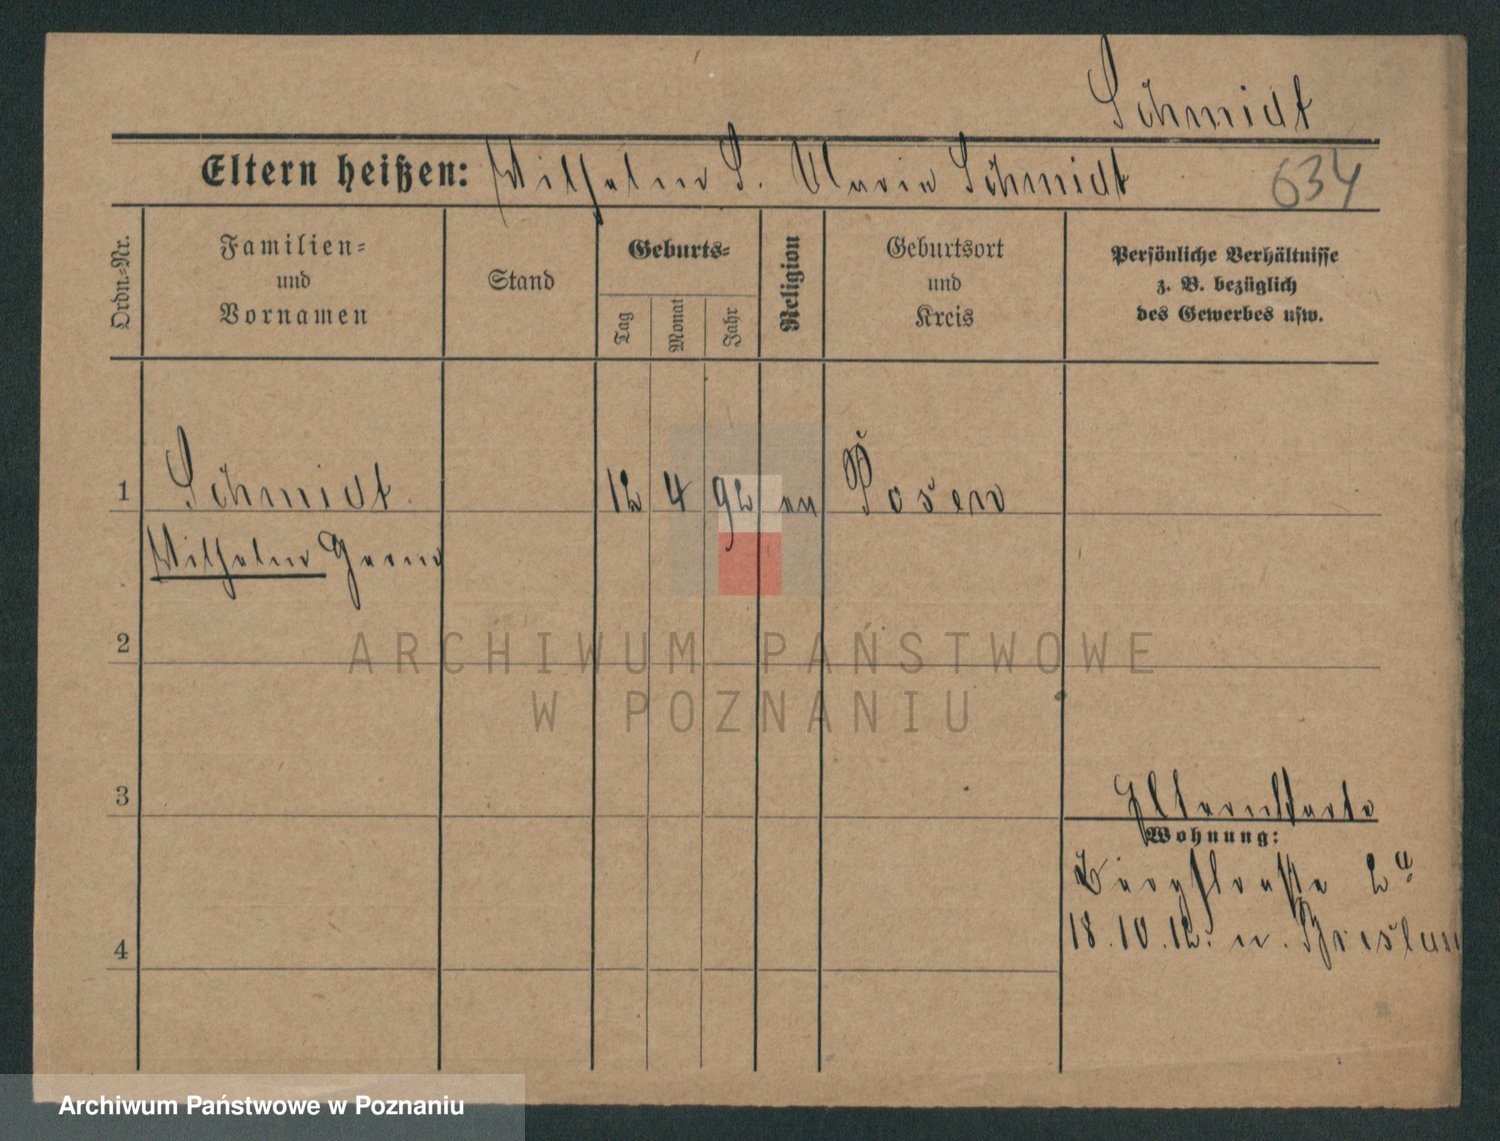 Schmidt
Eltern heißen: Wilhelm S. Maria Schmidt
634
Ordn.=Nr.
Familien=
und
Vornamen
Stand
Geburts=
Tag
Monat
Jahr
Religion
Geburtsort
und
Kreis
Persönliche Verhältnisse
z. B. bezüglich
des Gewerbes usw.
1 Schmidt 12 4 92 ev Posen
Wilhelm
2
ARCHIWUM PAŃSTWOWE
W POZNANIU
3
Elternkarte
Wohnung:
Bergstraße 2a
4
18.10.12. n. Breslau
Archiwum Państwowe w Poznaniu